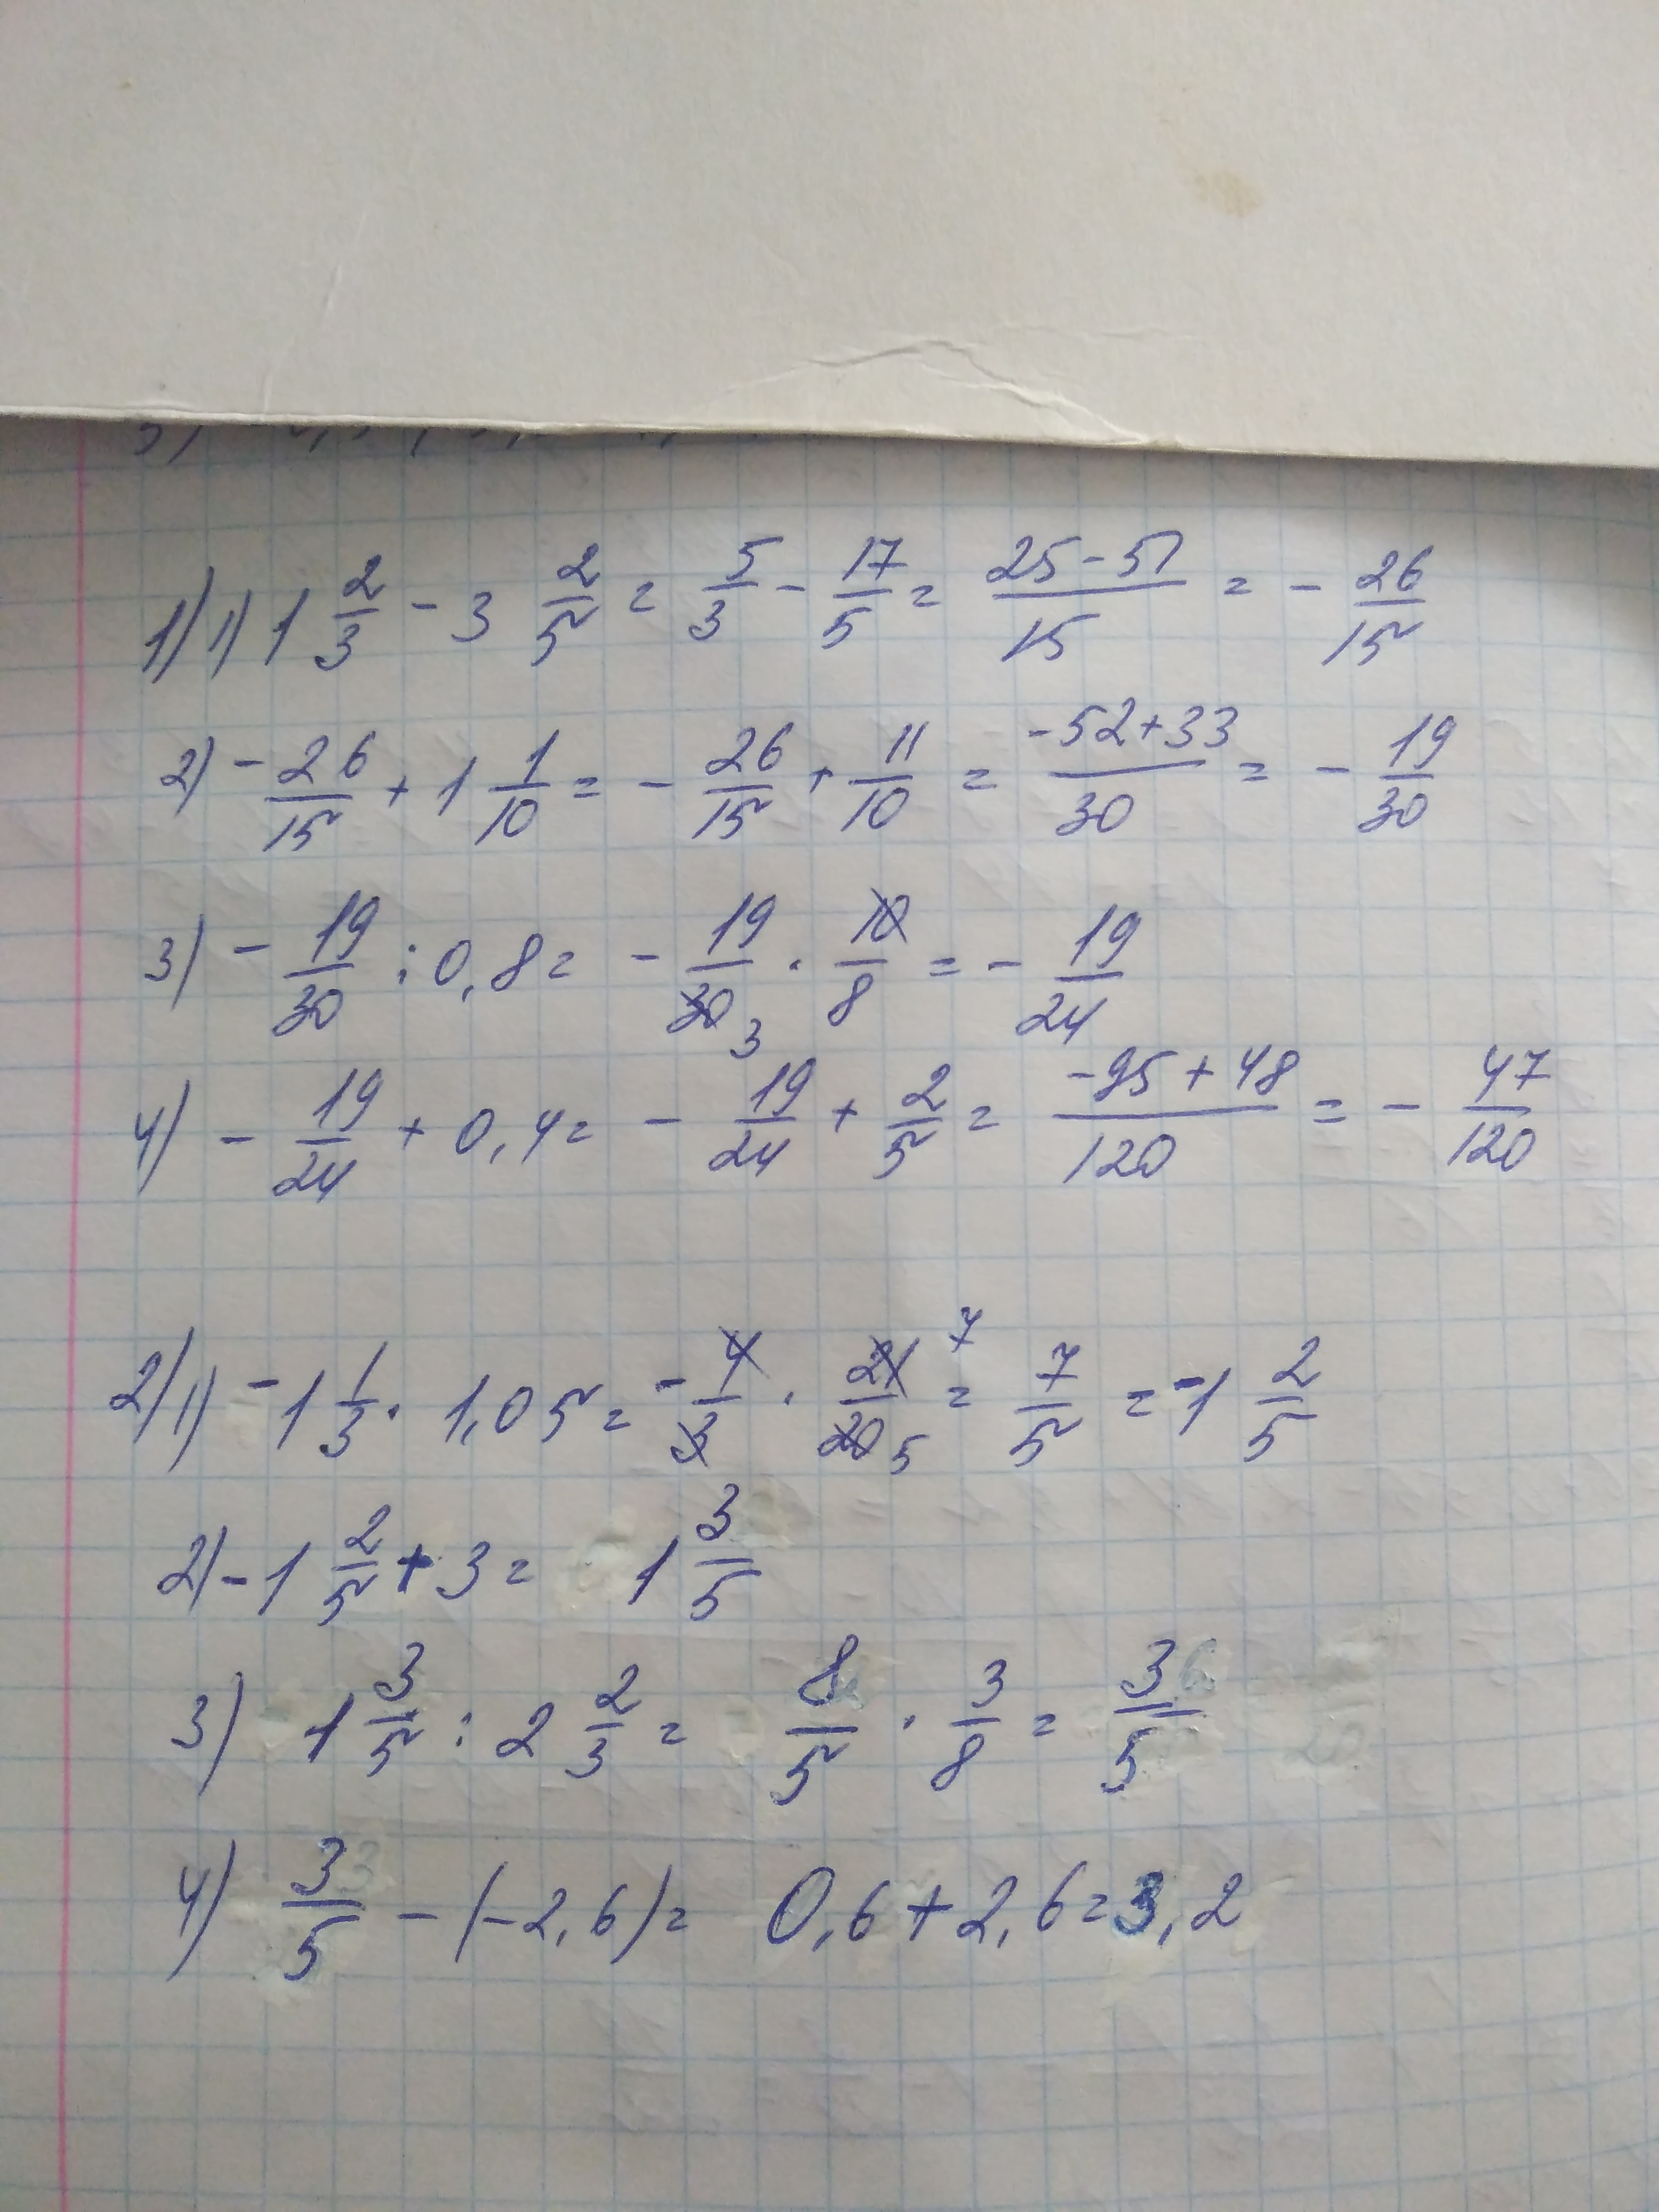 1) 1) 1 2/3 - 3 2/5 = 5/3 - 17/5 = (25-51)/15 = - 26/15
2) - 26/15 + 1 1/10 = - 26/15 + 11/10 = (-52+33)/30 = - 19/30
3) - 19/30 : 0,8 = - 19/30 3 · 10/8 = - 19/24
4) - 19/24 + 0,4 = - 19/24 + 2/5 = (-95+48)/120 = - 47/120
2) 1) -1 1/3 · 1,05 = - 4/3 · 21 7/20 5 = 7/5 = -1 2/5
2) -1 2/5 + 3 = 1 3/5
3) 1 3/5 : 2 2/3 = 8/5 · 3/8 = 3/5
4) 3/5 - (-2,6) = 0,6 + 2,6 = 3,2